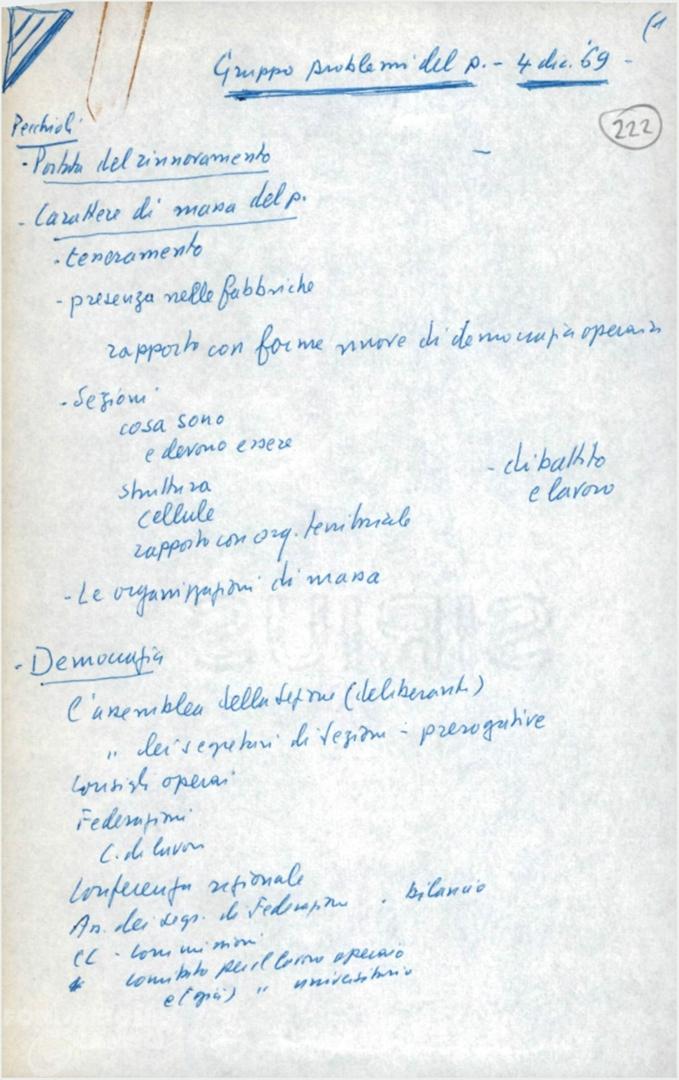 (1
Gruppo problemi del p. - 4 dic. '69 -
222
Pecchioli
- Portata del rinnovamento
- Carattere di massa del p.
- tesseramento
- presenza nelle fabbriche
rapporto con forme nuove di democrazia operaia
- Sezioni
cosa sono
e devono essere
struttura
cellule
rapporto con org. territoriale
- dibattito
e lavoro
- Le organizzazioni di massa
- Democrazia
L'assemblea della Sezione (deliberanti)
" dei segretari di Sezioni - prerogative
Consigli operai
Federazioni
C. di lavoro
Conferenza regionale
As. dei segr. di Federazione - bilancio
CC - Commissioni
Comitato per il lavoro operaio
e (già) " universitario
SIRIUS